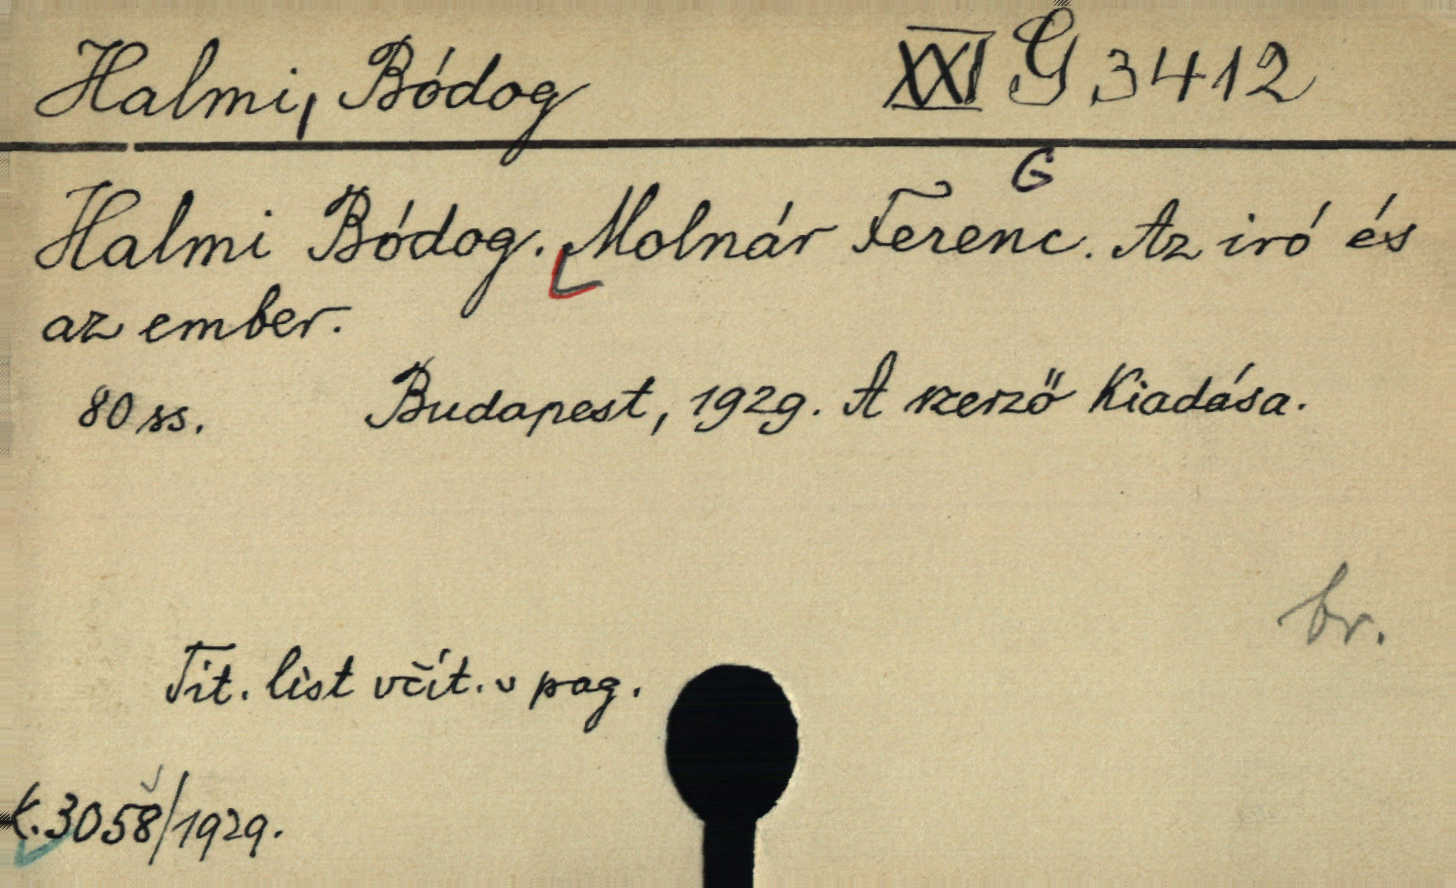 Halmi, Bódog XXI G 3412
G
Halmi Bódog. Molnár Ferenc. Az iró és
az ember.
80 ss. Budapest, 1929. A szerző Kiadása.
br.
Tit. list včít. v pag.
K. 3058/1929.